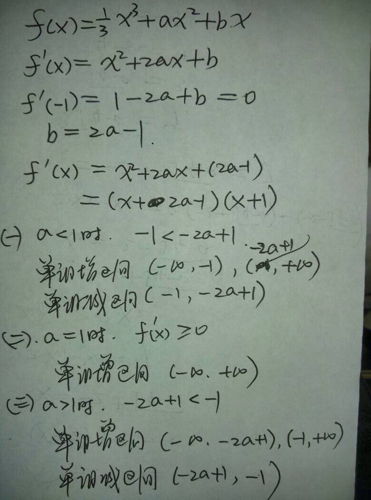 f(x)=1/3 x³+ax²+bx
f'(x)= x²+2ax+b
f'(-1)= 1-2a+b =0
b=2a-1.
f'(x) = x²+2ax+(2a-1)
=(x+2a-1)(x+1)
(一) a<1时. -1<-2a+1.
单调增区间 (-∞,-1), (-2a+1, +∞)
单调减区间(-1, -2a+1)
(二). a=1时. f'(x)≥0
单调增区间 (-∞. +∞)
(三) a>1时. -2a+1<-1
单调增区间 (-∞. -2a+1), (-1,+∞)
单调减区间 (-2a+1, -1)